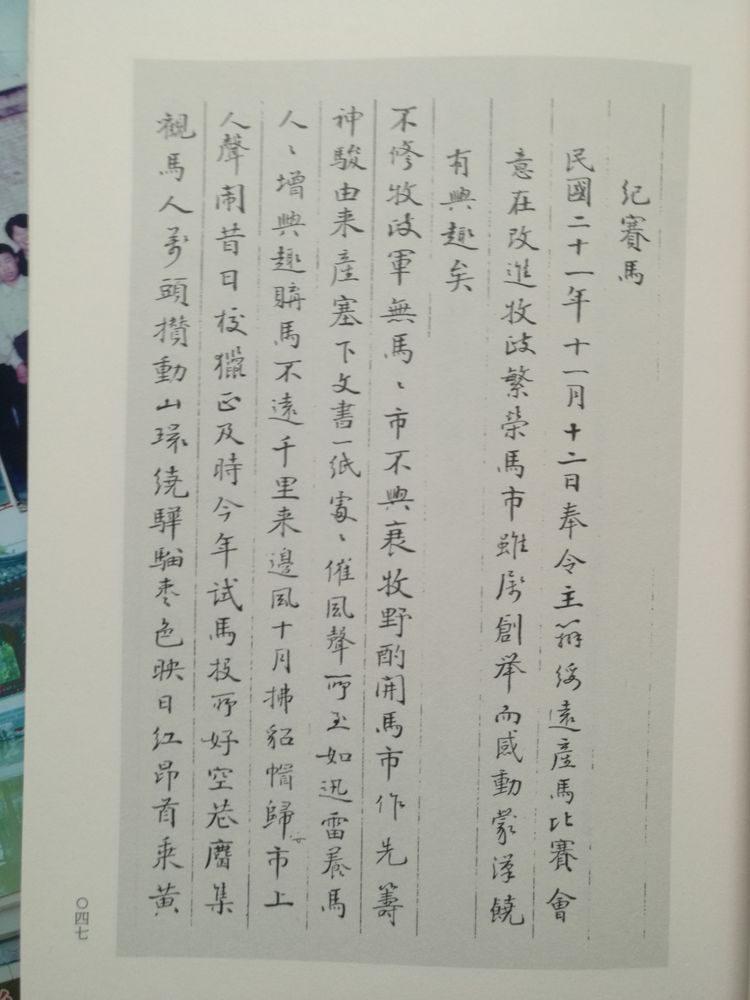 紀賽馬
民國二十一年十一月十二日奉令主辦綏遠產馬比賽會
意在改進牧政繁榮馬市雖屬創举而感動蒙漢饒
有興趣矣
不修牧政軍無馬〻市不興衰牧野酌開馬市作先籌
神駿由来產塞下文書一紙處〻催風聲所至如迅雷養馬
人〻增興趣購馬不遠千里来邊風十月拂貂帽歸市上
人聲闹昔日校獵正及時今年試馬投所好空巷麕集
觀馬人萬頭攢動山環繞驊騮棗色映日紅昂首乘黄
〇四七